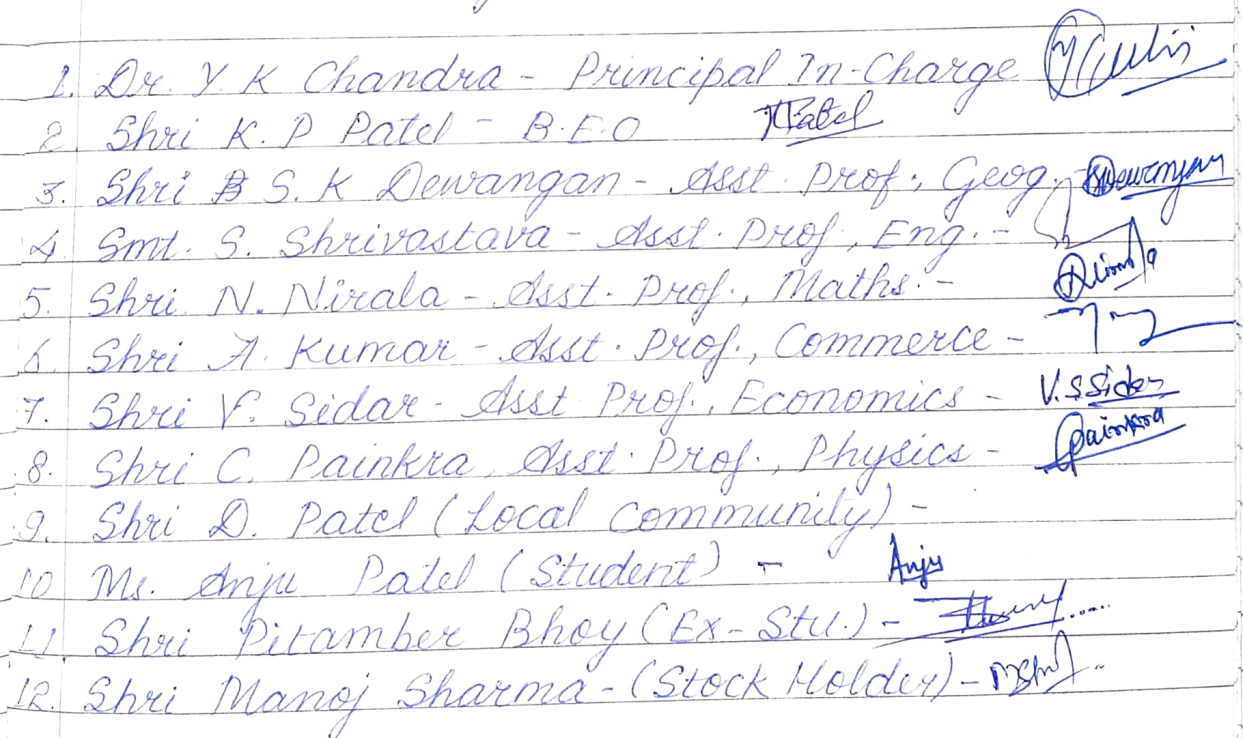 1. Dr. Y. K Chandra - Principal In-Charge
2. Shri K. P Patel - B.E.O KPatel
3. Shri S. K Dewangan - Asst. Prof., Geog. - SDewangan
4. Smt. S. Shrivastava - Asst. Prof., Eng. -
5. Shri. N. Nirala - Asst. Prof., Maths. -
6. Shri A. Kumar - Asst. Prof., Commerce -
7. Shri V. Sidar - Asst Prof., Economics - V.SSidar
8. Shri C. Painkra, Asst. Prof., Physics - CPainkra
9. Shri D. Patel (Local Community) -
10 Ms. Anju Patel (Student) - Anju
11. Shri Pitamber Bhoy (Ex-Stu.) -
12. Shri Manoj Sharma - (Stock Holder) -